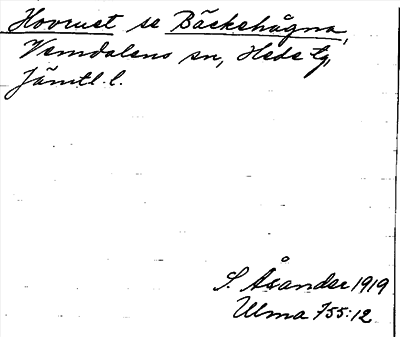 Hovrust se Bäckshågna,
Vemdalens sn, Hede tg,
Jämtl. l.
S. Åsander 1919
Ulma 755:12